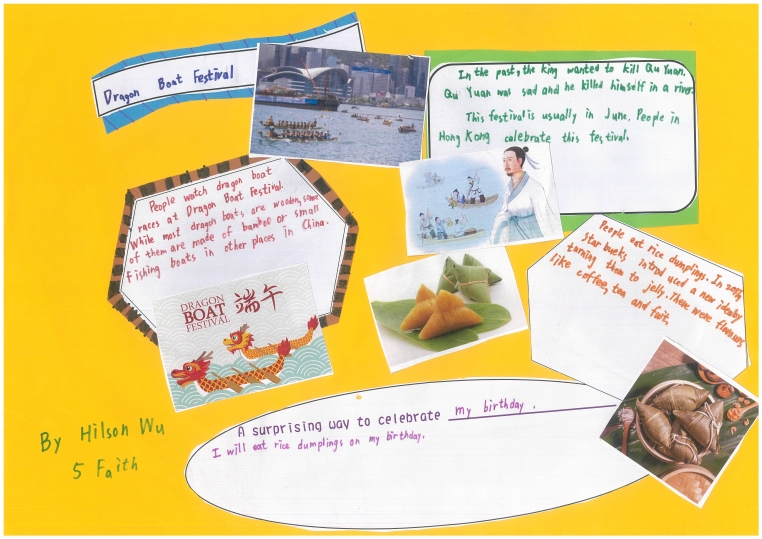 Dragon Boat Festival
In the past, the king wanted to kill Qu Yuan.
Qu Yuan was sad and he killed himself in a river.
This festival is usually in June. People in
Hong Kong celebrate this festival.
People watch dragon boat
races at Dragon Boat Festival.
While most dragon boats are wooden, some
of them are made of bamboo or small
fishing boats in other places in China.
DRAGON
BOAT
FESTIVAL
端午
People eat rice dumplings. In 2009,
Starbucks introduced a new idea by
turning them to jelly. There were flavours
like coffee, tea and fruit.
A surprising way to celebrate my birthday.
I will eat rice dumplings on my birthday.
By Hilson Wu
5 Faith